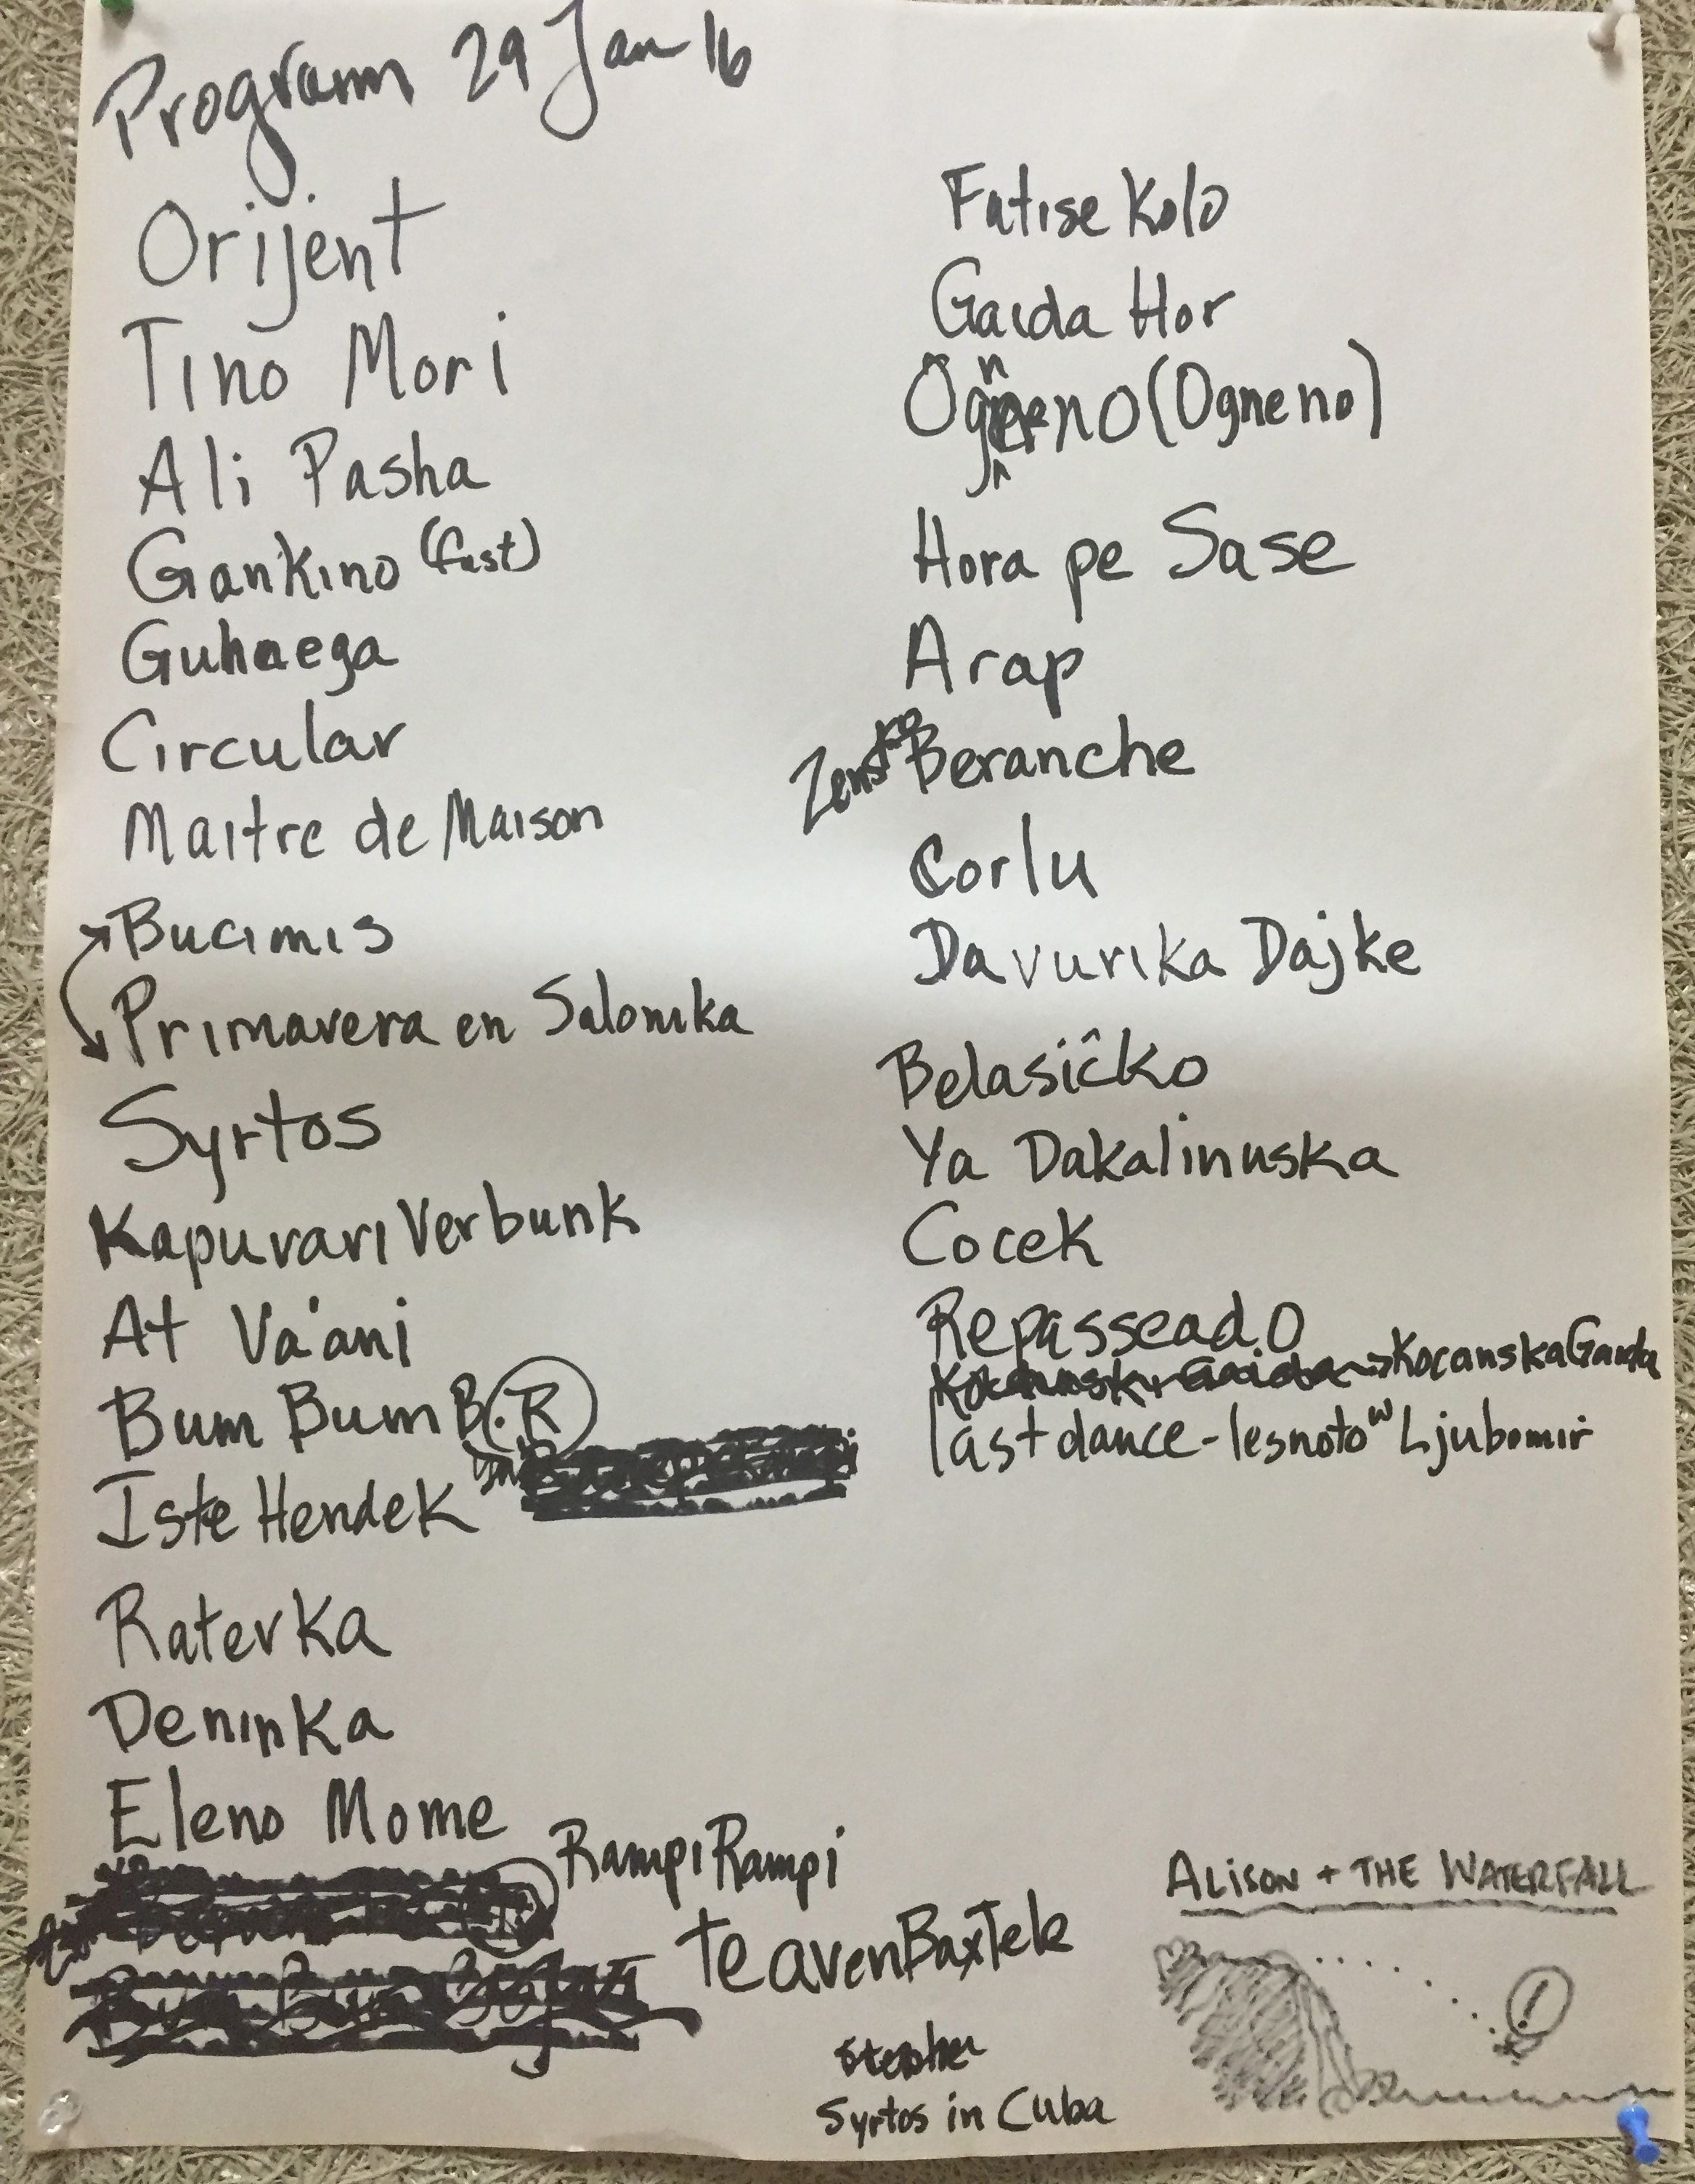 Program 29 Jan 16
Orijent
Tino Mori
Ali Pasha
Gankino (fast)
Guhnega
Circular
Maitre de Maison
Bucimis
Primavera en Salonika
Syrtos
Kapuvari Verbunk
At Va'ani
Bum Bum B.R
Iste Hendek
Ratevka
Deninka
Eleno Mome
Rampi Rampi
te aven BaxTele
Syrtos in Cuba
Fatise Kolo
Gaida Hor
Ogneno (Ogneno)
Hora pe Sase
Arap
Zensko Beranche
Corlu
Davurika Dajke
Belasičko
Ya Dakalinuska
Cocek
Repasseado
Kocanska Gaida → Kocanska Gaida
last dance - lesnoto w Ljubomir
ALISON + THE WATERFALL
!